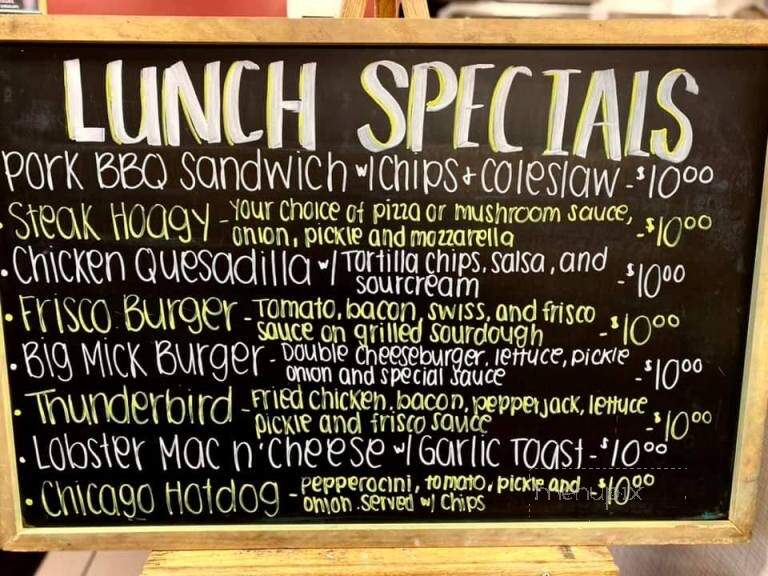 LUNCH SPECIALS
Pork BBQ Sandwich w/ Chips + Coleslaw - $10.00
• Steak Hoagy - Your choice of pizza or mushroom sauce,
onion, pickle and mozzarella - $10.00
• Chicken Quesadilla w/ Tortilla chips, salsa, and
sourcream - $10.00
• Frisco Burger - Tomato, bacon, swiss, and frisco
sauce on grilled sourdough - $10.00
• Big Mick Burger - Double cheeseburger, lettuce, pickle
onion and special sauce - $10.00
• Thunderbird - Fried chicken, bacon, pepperjack, lettuce
pickle and frisco sauce - $10.00
• Lobster Mac n' Cheese w/ Garlic Toast - $10.00
• Chicago Hotdog - Pepperocini, tomato, pickle and
onion. Served w/ Chips - $10.00
menupix